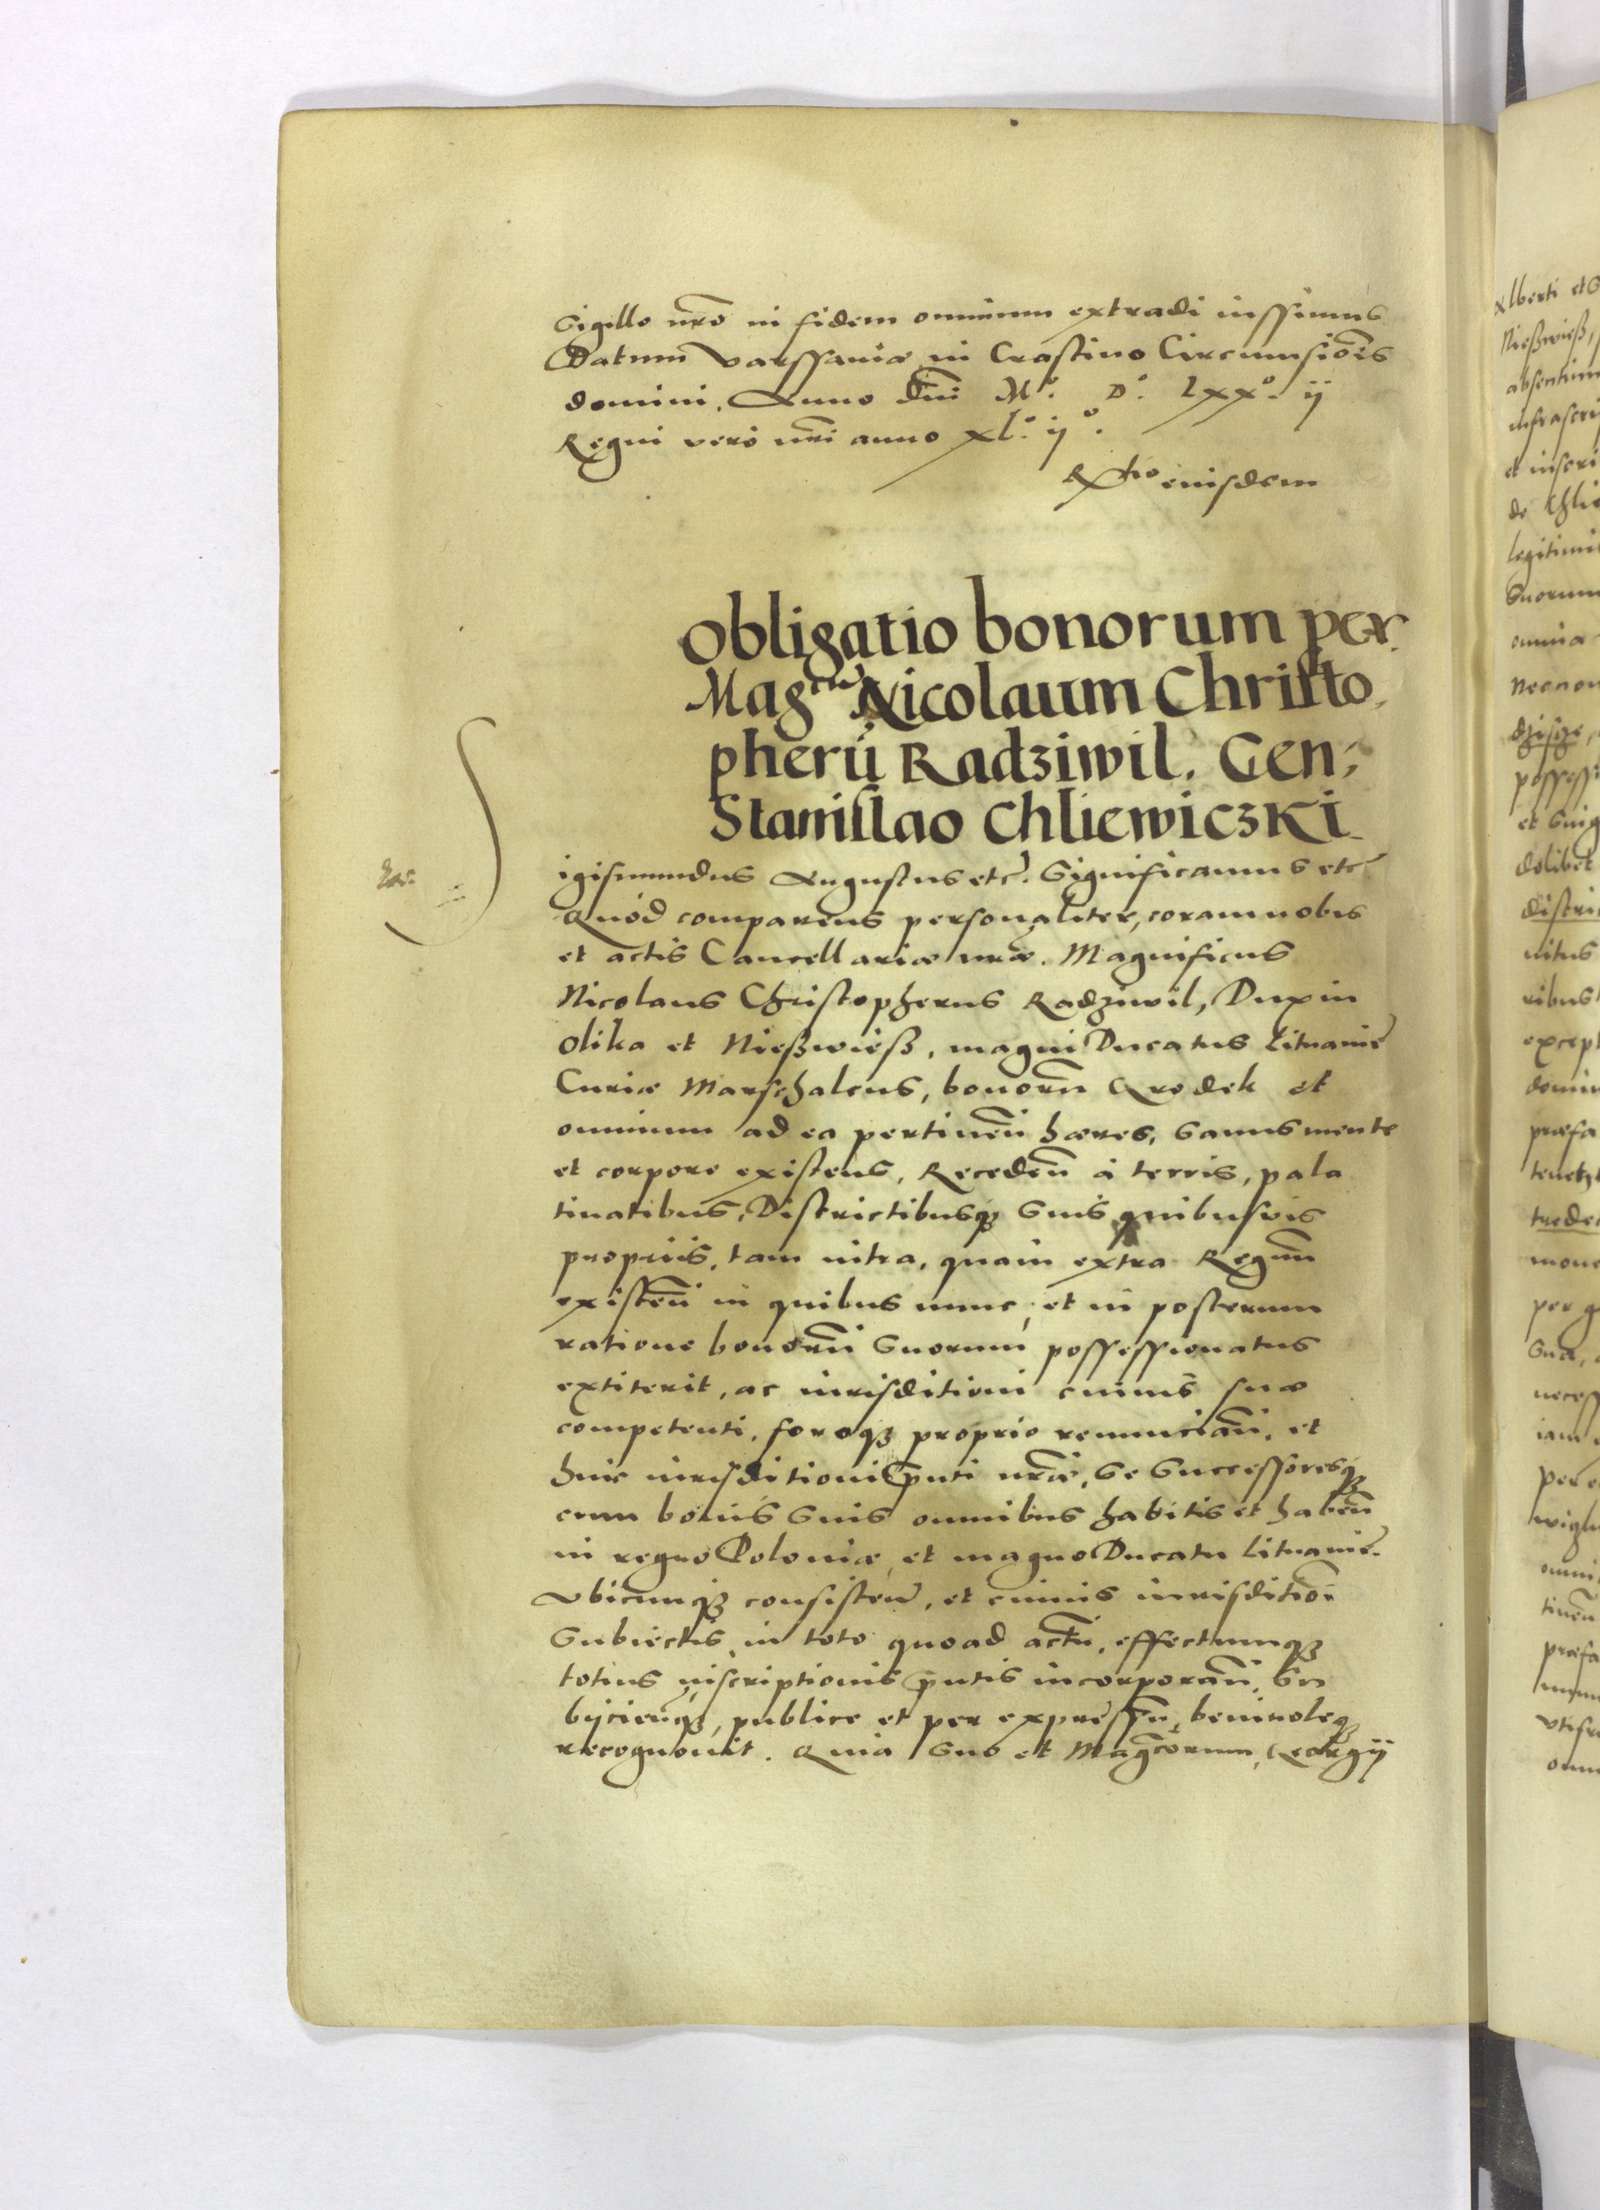 Sigillo nr̃o in fidem omnium extradi iussimus
Datum Varssaviæ in Crastino Circumcisiõis
domini. Anno dñi M°. D°. Lxx°. ij
Regni vero nr̃i anno xl°. ij°.
Rltio eiusdem
Obligatio bonorum per
Mag^cum Nicolaum Christo,
pherũ Radziwil. Gen:
Stanislao Chliewiczki
igismundus Augustus etc. Significamus etc
Quod comparens personaliter, coram nobis
et actis Cancellariæ nr̃æ. Magnificus
Nicolaus Christopherus Radziwil, Dux in
Olika et Nießwieß, magni Ducatus Lituaniẽ
Curiæ Marschalcus, bonorũ Grodek et
omnium ad ea pertinẽn hæres, sanus mente
et corpore existens, Recedẽn à terris, pala
tinatibus, Districtibusq₃ suis quibusvis
propriis, tam intra, quam extra Regnũ
existẽn in quibus nunc, et in posterum
ratione bonorũ suorum possessionatus
extiterit, ac iurisditioni cuiuis suæ
competenti, foroq₃ proprio renunciãn, et
huic iurisditioni p̃nti nr̃æ, se successoresq₃
cum bonis suis omnibus habitis et habẽn
in regno Poloniæ, et magno Ducatu Lituaniẽ.
Vbicunq₃ consistẽn, et cuiuis iurisditiõi
subiectis, in toto quoad actũ, effectumq₃
totius inscriptionis p̃ntis incorporãn, su
bijcienq₃, publice et per expressũ, benivoleq₃
recognovit. Quia suo et Mag̃corum, Georgij
Alberti et S
Nießwieß,
absentium
infrascri
et inscri
de Chlie
legitimi
suorum
omnia
Necnon
possessi
et
dolibet
distri
nitus
ribus
except
domin
præfa
mone
per
sua,
necess
iam
per
omni
tinẽn
præfa